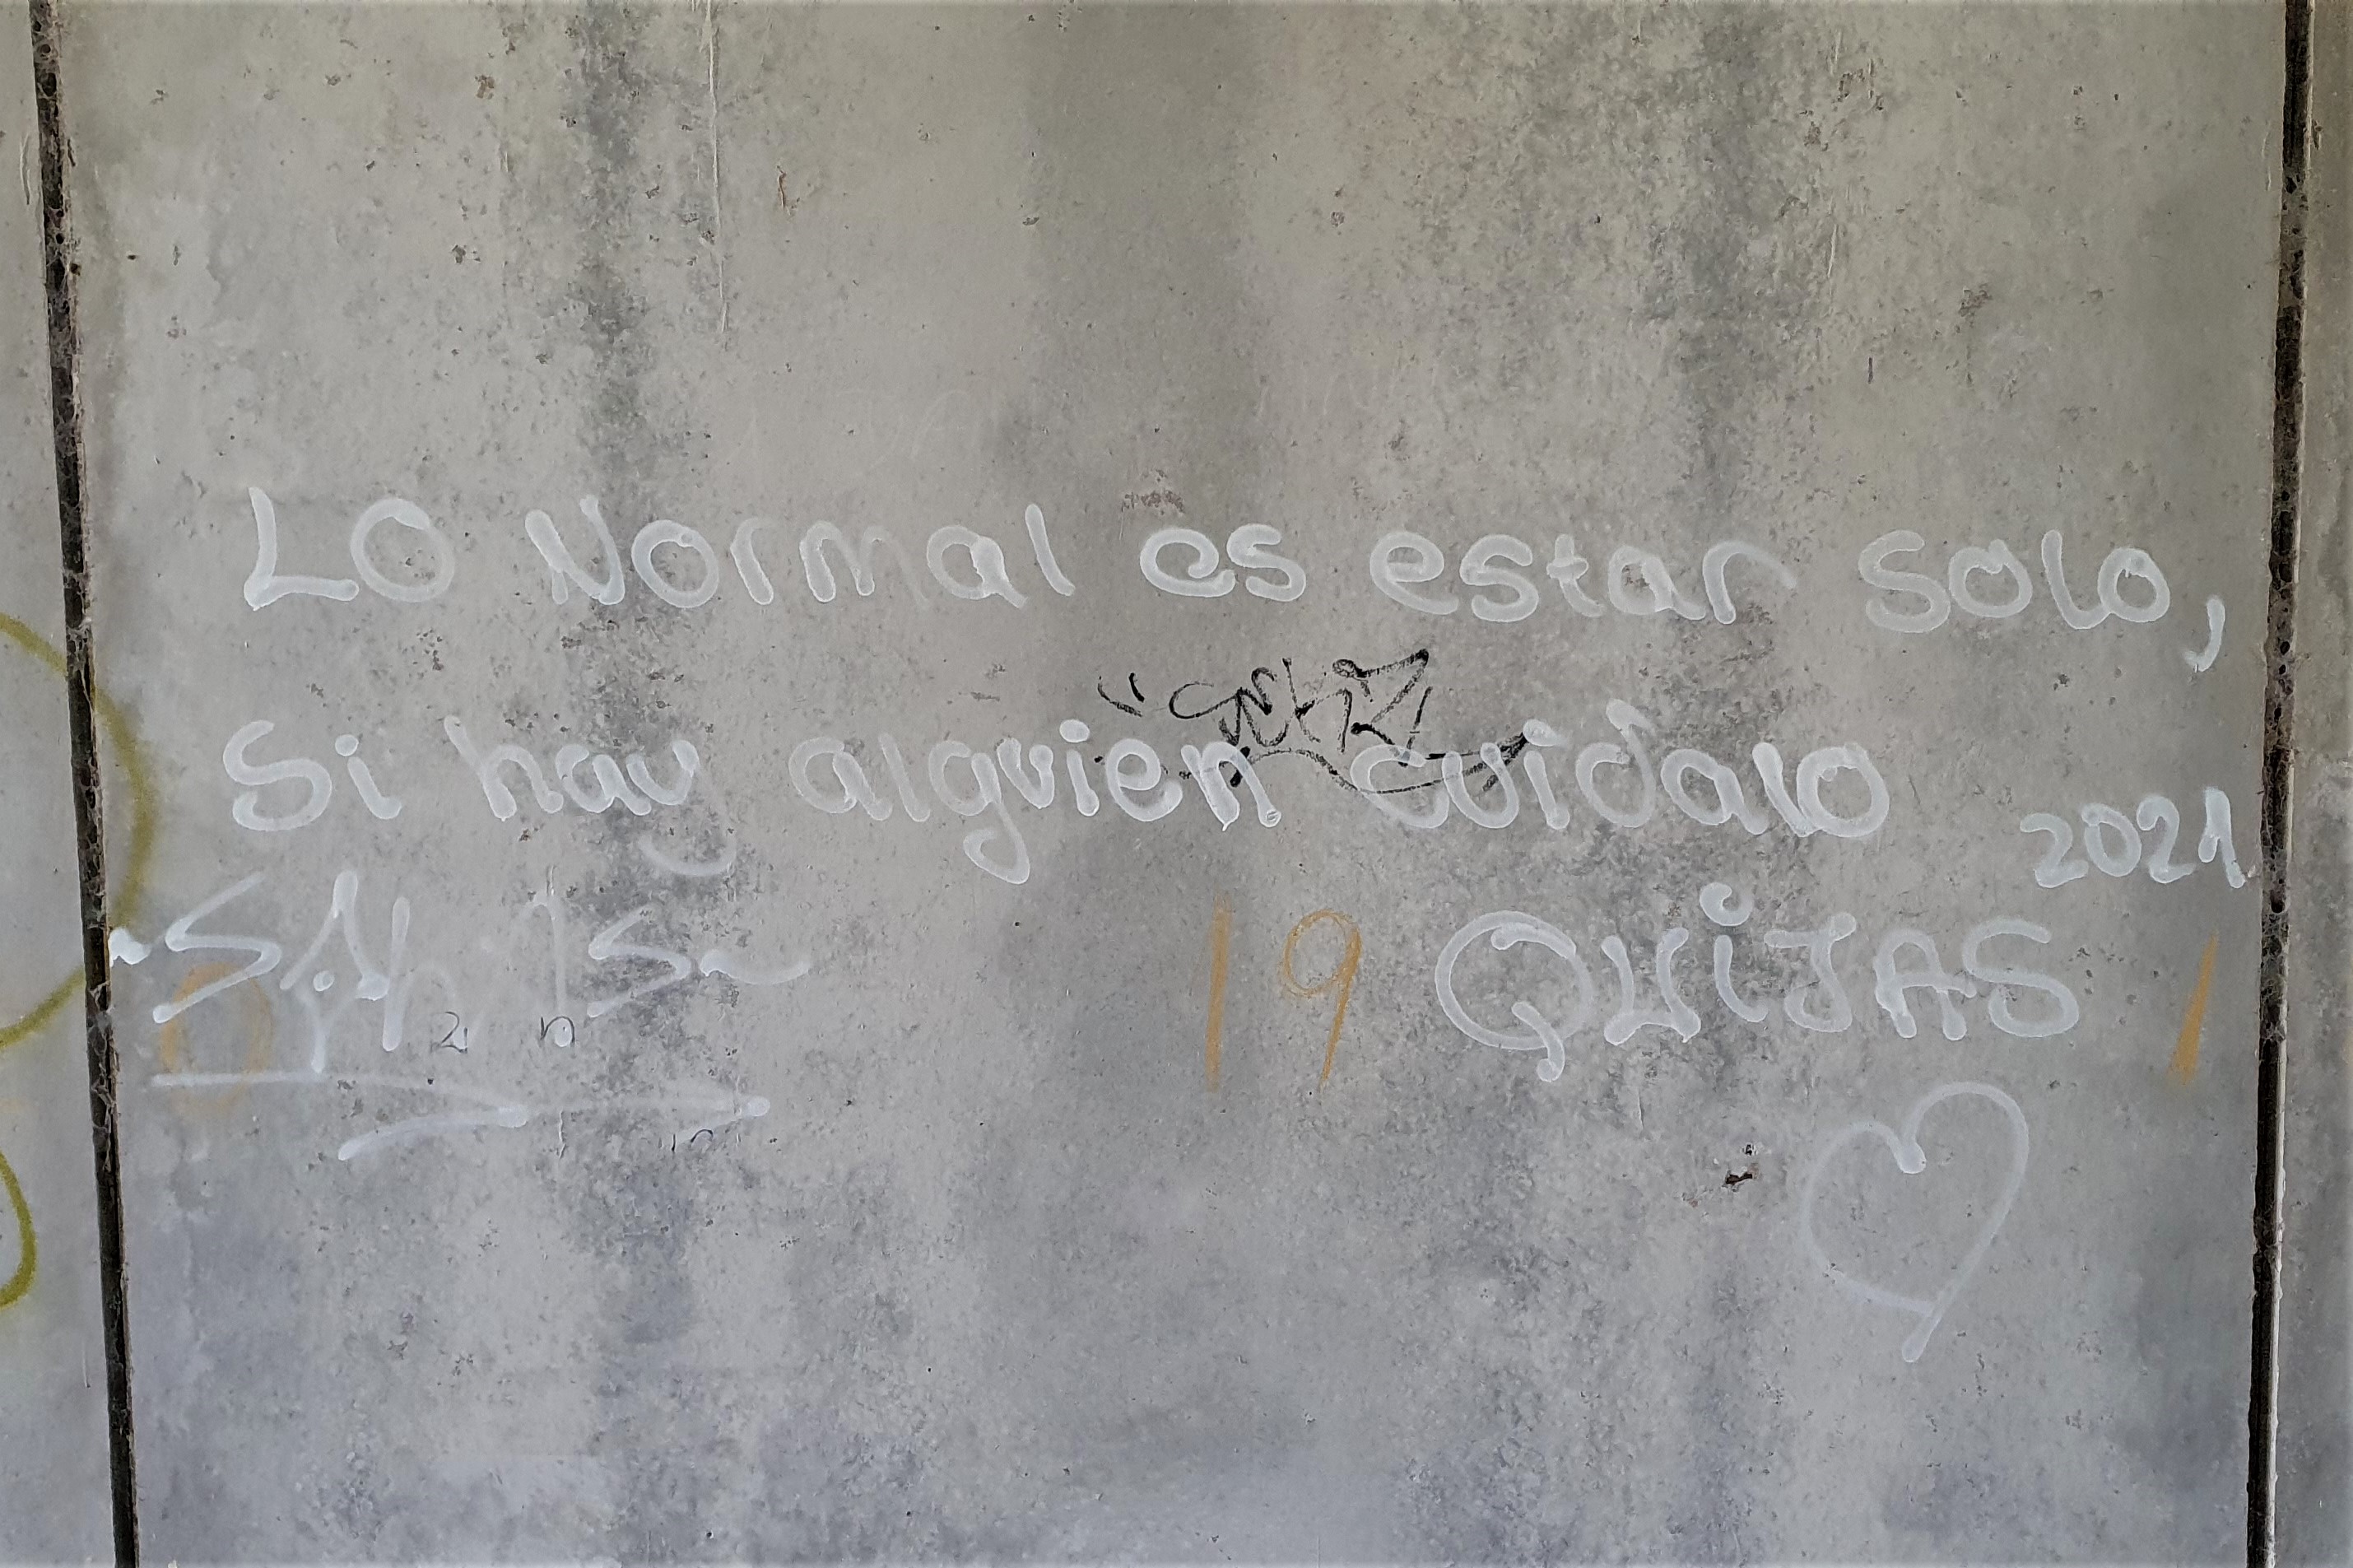 LO Normal es estar solo,
Si hay alguien cuidalo
2021
19 QUiJAS 1